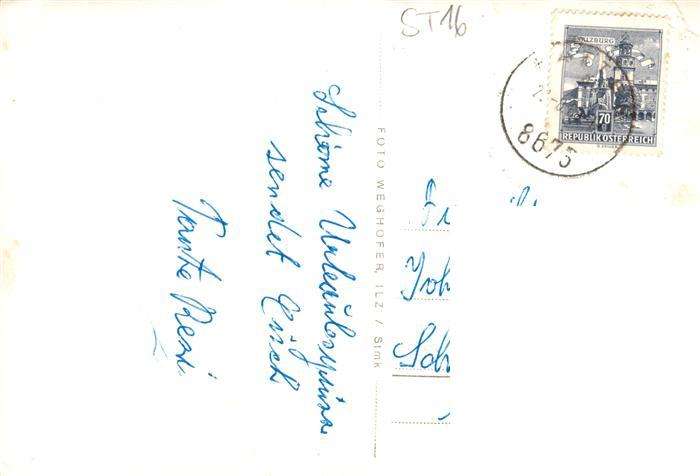 ST 16
SALZBURG
70
REPUBLIK ÖSTERREICH
8675
Schöne Urlaubsgrüsse
sendet Euch
Tante Resi
FOTO WEGHOFER, ILZ / Stmk